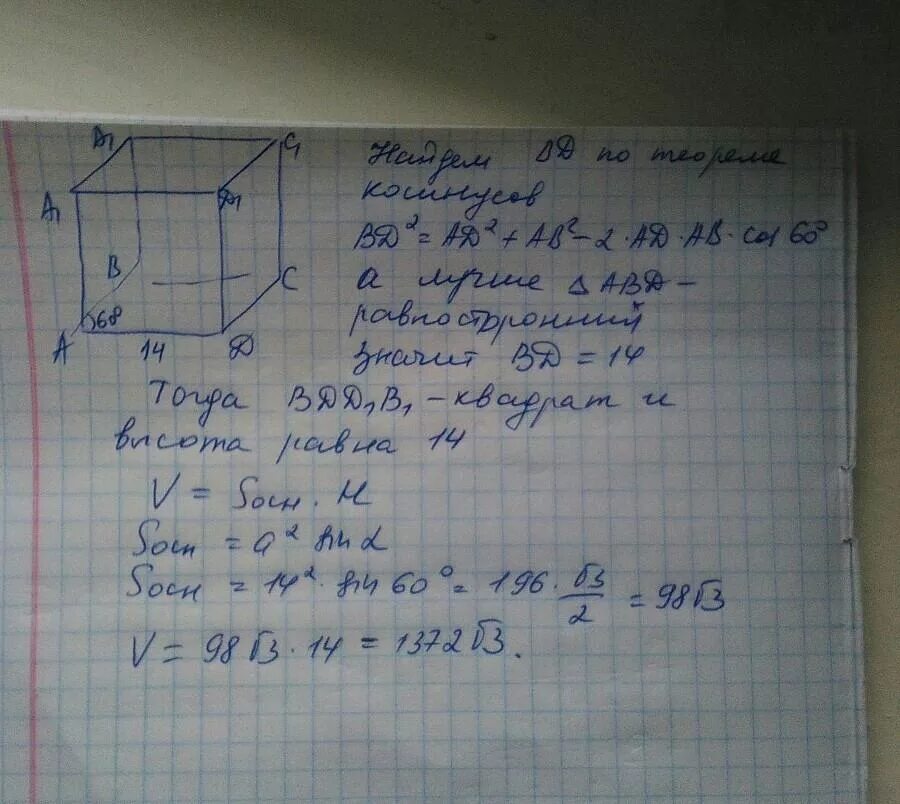 Д1
С1
А1
Д1
В
С
60°
А
14
Д
Найдем ВД по теореме
косинусов
ВД² = АД² + АВ² - 2·АД·АВ·cos 60°
а лучше △ АВД -
равносторонний
значит ВД = 14
Тогда ВДД₁В₁ - квадрат и
высота равна 14
V = Sосн · H
Sосн = a² sin α
Sосн = 14² · sin 60° = 196 · √3/2 = 98√3
V = 98√3 · 14 = 1372√3.